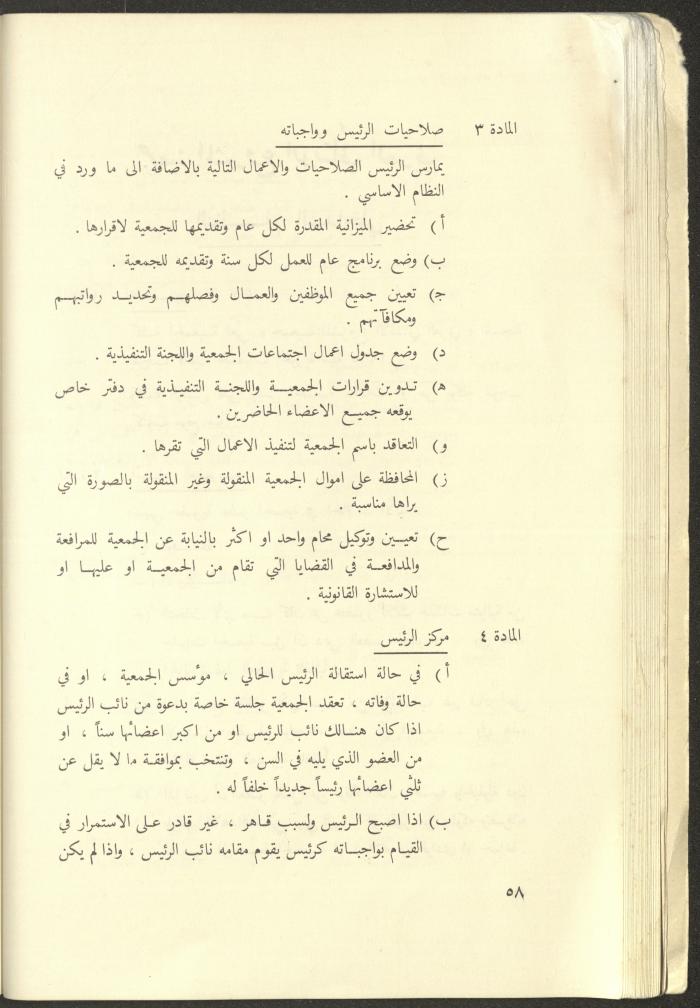 المادة ٣ صلاحيات الرئيس وواجباته
يمارس الرئيس الصلاحيات والاعمال التالية بالاضافة الى ما ورد في
النظام الاساسي .
أ ) تحضير الميزانية المقدرة لكل عام وتقديمها للجمعية لاقرارها .
ب) وضع برنامج عام للعمل لكل سنة وتقديمه للجمعية .
ج) تعيين جميع الموظفين والعمال وفصلهم وتحديد رواتبهم
ومكافآتهم .
د) وضع جدول اعمال اجتماعات الجمعية واللجنة التنفيذية .
ه) تدوين قرارات الجمعية واللجنة التنفيذية في دفتر خاص
يوقعه جميع الاعضاء الحاضرين .
و) التعاقد باسم الجمعية لتنفيذ الاعمال التي تقرها .
ز) المحافظة على اموال الجمعية المنقولة وغير المنقولة بالصورة التي
يراها مناسبة .
ح) تعيين وتوكيل محام واحد او اكثر بالنيابة عن الجمعية للمرافعة
والمدافعة في القضايا التي تقام من الجمعية او عليها او
للاستشارة القانونية .
المادة ٤ مركز الرئيس
أ ) في حالة استقالة الرئيس الحالي ، مؤسس الجمعية ، او في
حالة وفاته ، تعقد الجمعية جلسة خاصة بدعوة من نائب الرئيس
اذا كان هنالك نائب للرئيس او من اكبر اعضائها سناً ، او
من العضو الذي يليه في السن ، وتنتخب بموافقة ما لا يقل عن
ثلثي اعضائها رئيساً جديداً خلفاً له .
ب) اذا اصبح الرئيس ولسبب قاهر ، غير قادر على الاستمرار في
القيام بواجباته كرئيس يقوم مقامه نائب الرئيس ، واذا لم يكن
٥٨